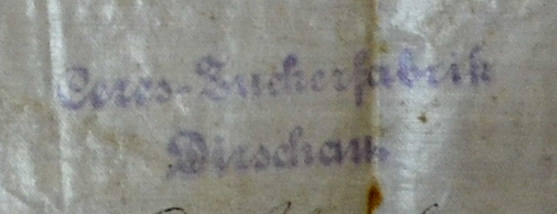 Ceres-Zuckerfabrik
Dirschau.